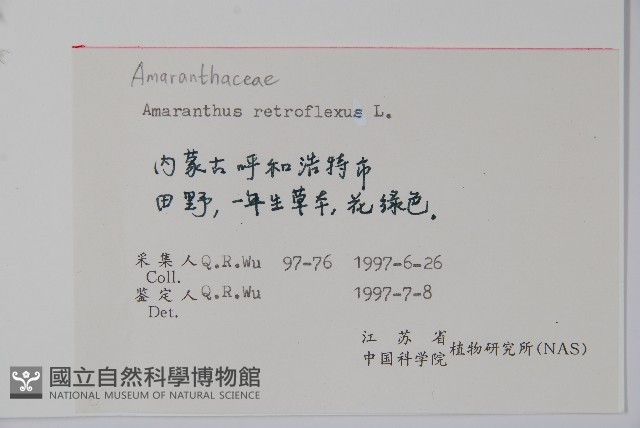 Amaranthaceae
Amaranthus retroflexus L.
内蒙古呼和浩特市
田野,一年生草本,花绿色.
采集人 Q.R.Wu 97-76 1997-6-26
Coll.
鉴定人 Q.R.Wu 1997-7-8
Det.
江苏省
中国科学院 植物研究所(NAS)
國立自然科學博物館
NATIONAL MUSEUM OF NATURAL SCIENCE